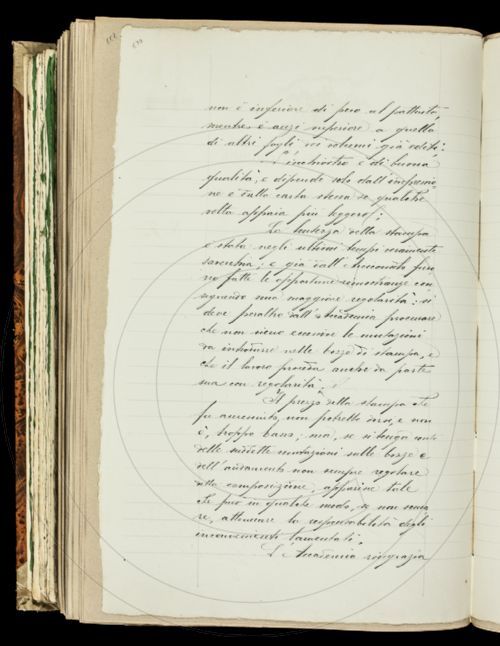 non è inferiore di peso al pattuito,
mentre è anzi superiore a quello
di altri fogli, nei volumi già editi.
L'inchiostro è di buona
qualità, e dipende solo dall'impressio-
ne e dalla carta stessa se qualche
volta appaia più leggero.
La lentezza della stampa
è stata negli ultimi tempi veramente
soverchia; e già dall'Accademia furo-
no fatte le opportune rimostranze con-
seguendo una maggiore regolarità: si
deve peraltro dall'Accademia procurare
che non siano eccessive le mutazioni
da introdurre nelle bozze di stampa, e
che il lavoro proceda anche da parte
sua con regolarità.
Il prezzo della stampa che
fu aumentato, non potrebbe dirsi, e non
è, troppo basso; ma, se si tenga conto
delle suddette mutazioni sulle bozze e
dell'andamento non sempre regolare
della composizione, apparisce tale
che può in qualche modo, se non scusa-
re, attenuare la responsabilità degli
inconvenienti lamentati.
L'Accademia ringrazia